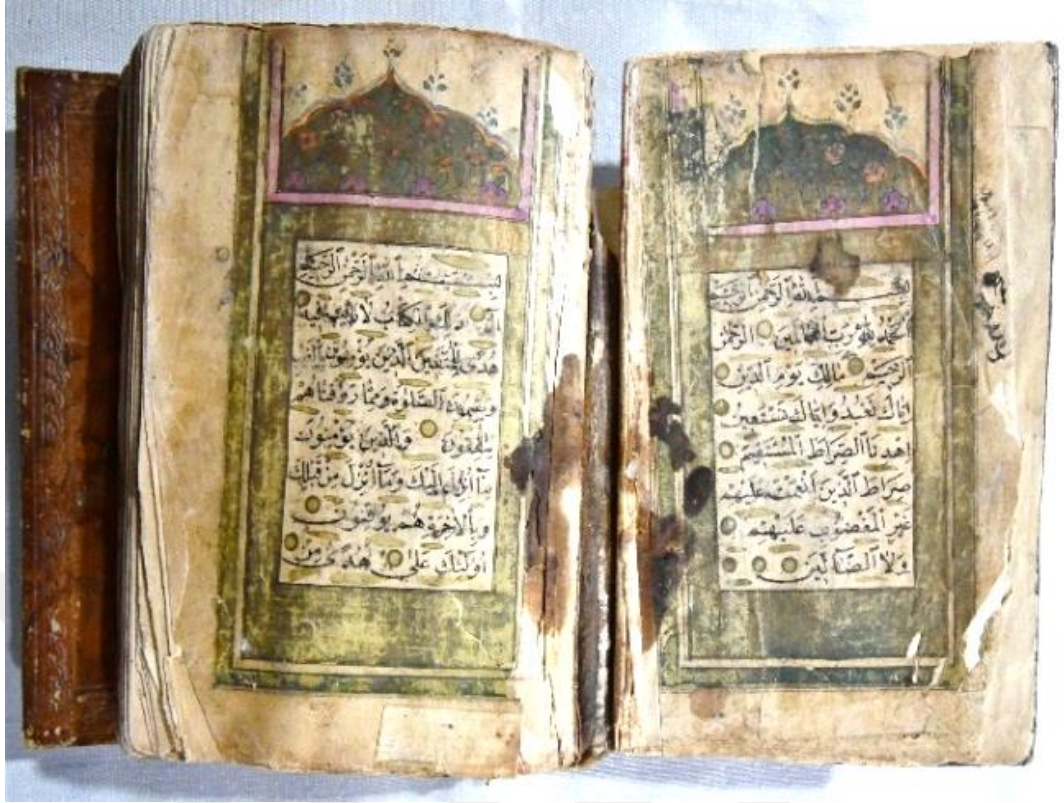 بسم الله الرحمن الرحيم
الحمد لله رب العالمين الرحمن
الرحيم مالك يوم الدين
اياك نعبد واياك نستعين
اهدنا الصراط المستقيم
صراط الذين انعمت عليهم
غير المغضوب عليهم
ولا الضالين
بسم الله الرحمن الرحيم
الم ذلك الكتاب لا ريب فيه
هدى للمتقين الذين يؤمنون بالغيب
ويقيمون الصلوة ومما رزقناهم
ينفقون والذين يؤمنون
بما انزل اليك وما انزل من قبلك
وبالاخرة هم يوقنون
اولئك على هدى من